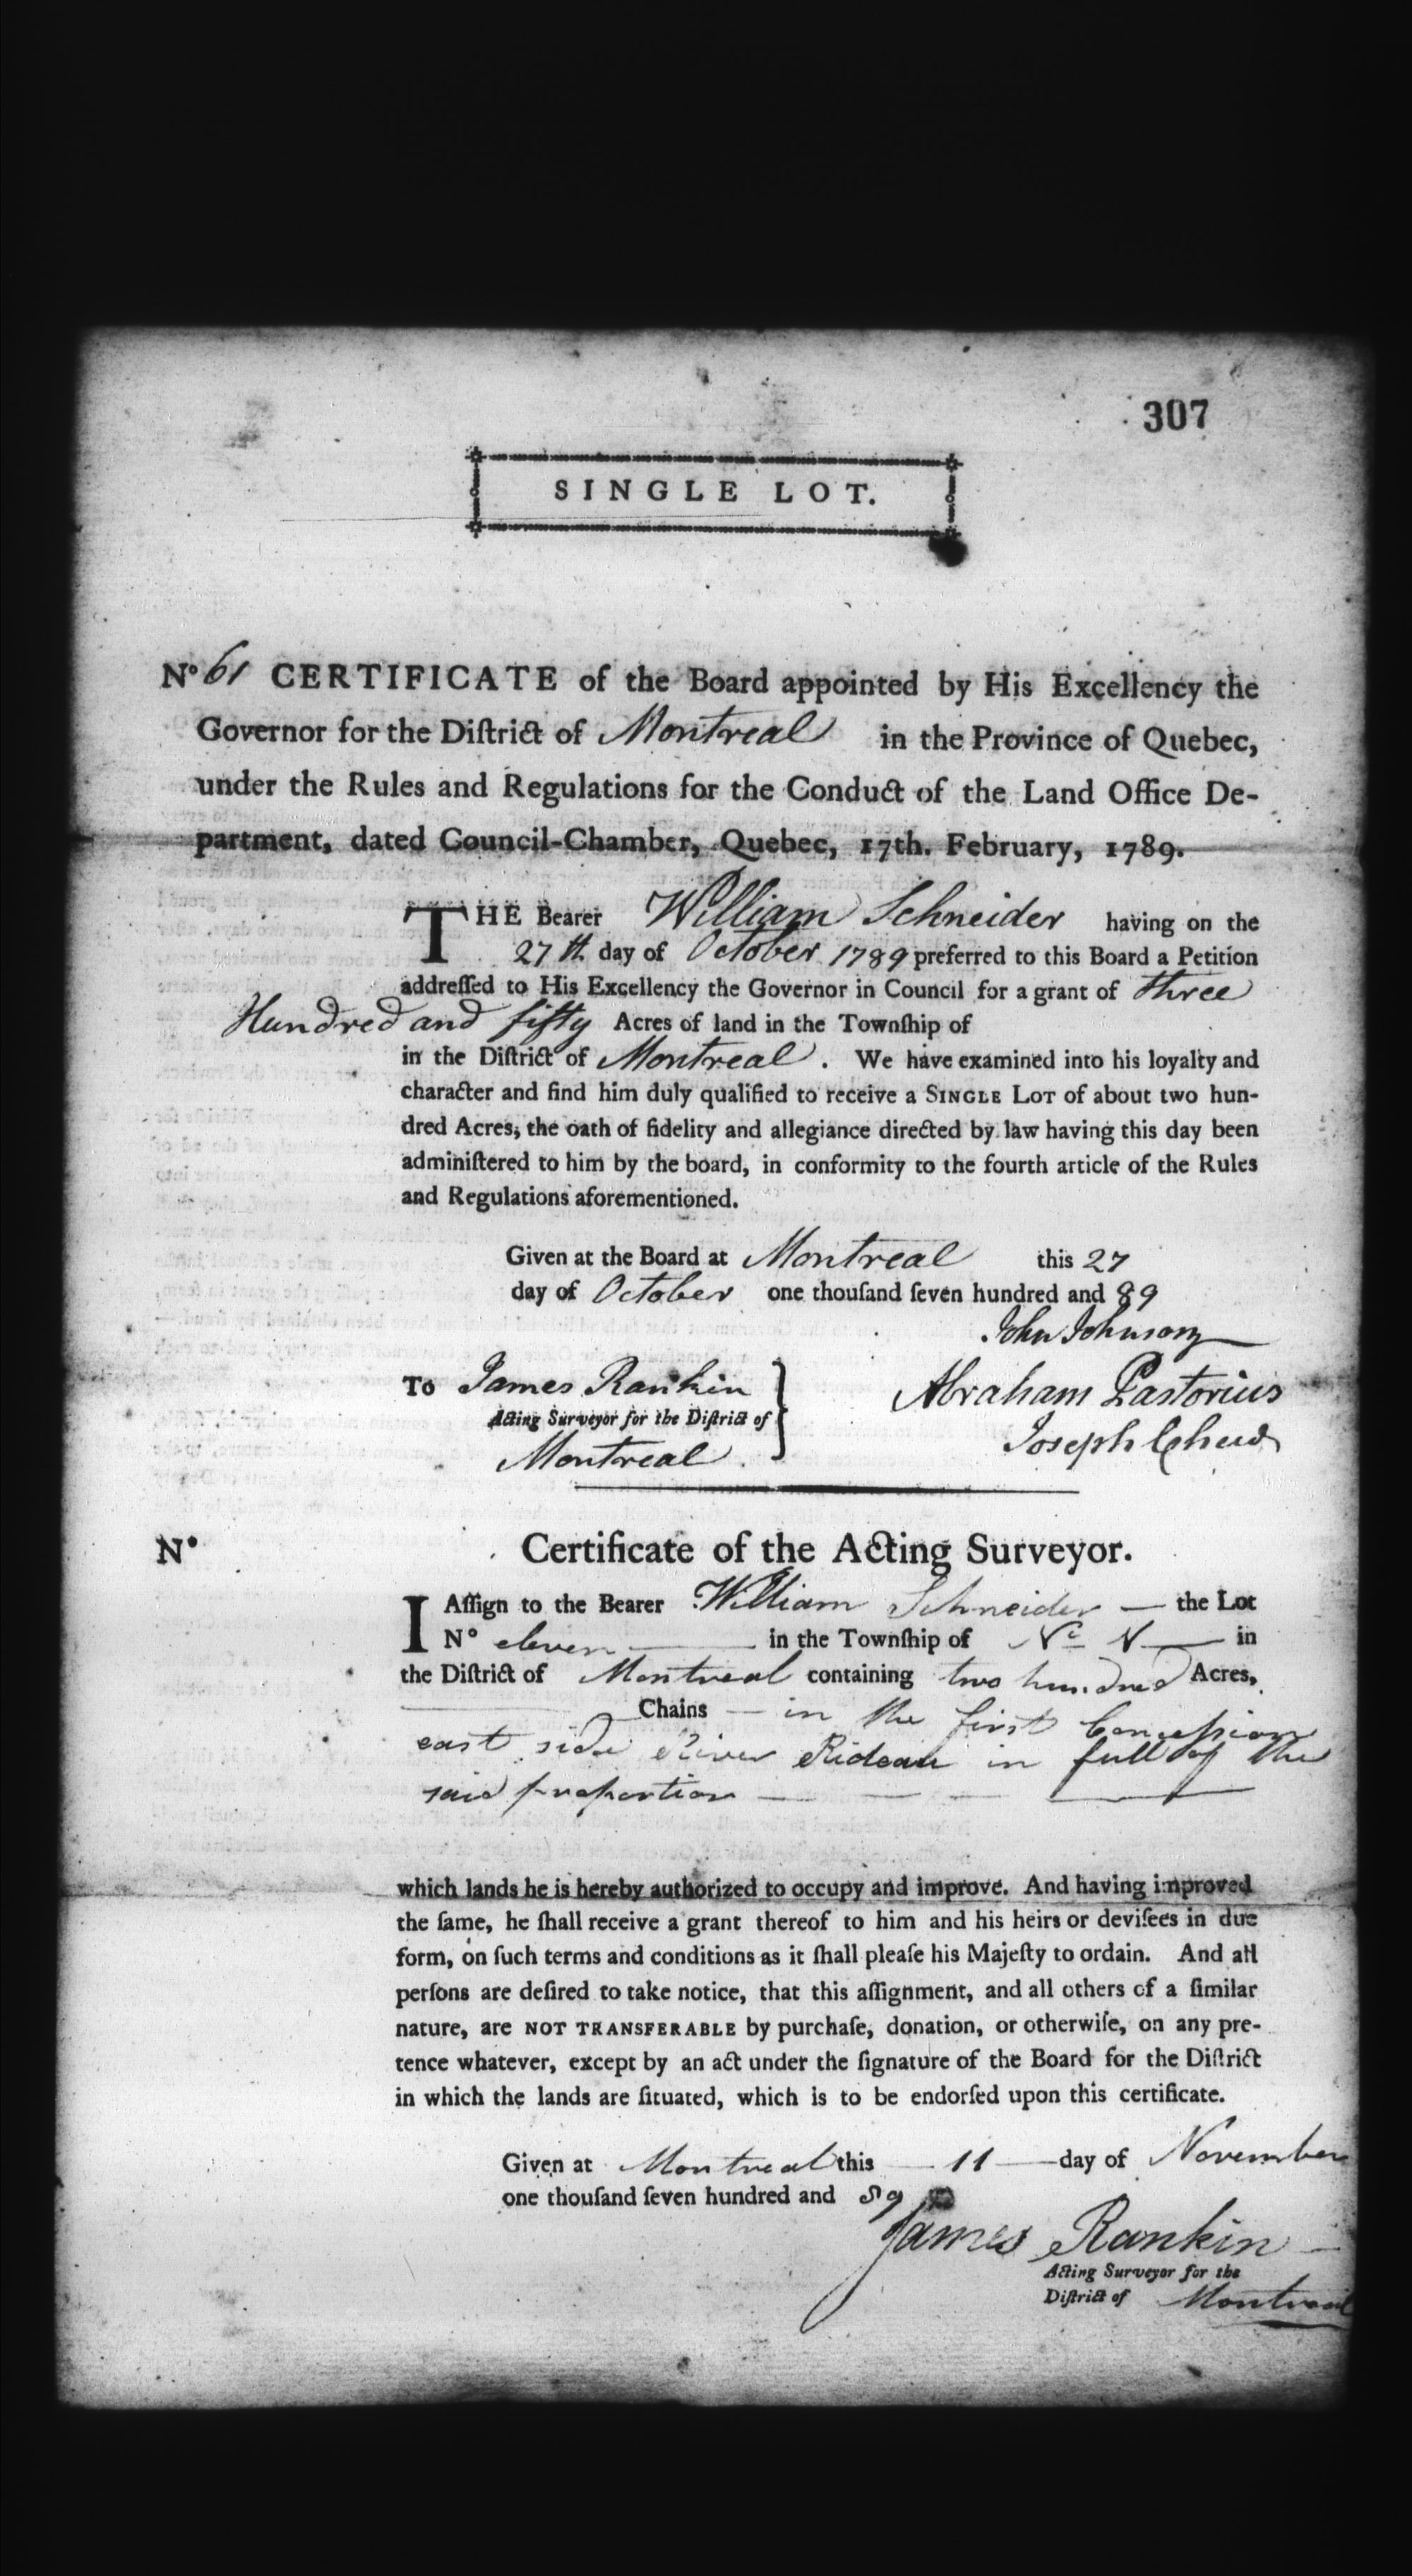 307
SINGLE LOT.
No. 61 CERTIFICATE of the Board appointed by His Excellency the
Governor for the Diſtrict of Montreal in the Province of Quebec,
under the Rules and Regulations for the Conduct of the Land Office De-
partment, dated Council-Chamber, Quebec, 17th. February, 1789.
THE Bearer William Schneider having on the
27th day of October 1789 preferred to this Board a Petition
addreſſed to His Excellency the Governor in Council for a grant of three
Hundred and fifty Acres of land in the Townſhip of
in the Diſtrict of Montreal. We have examined into his loyalty and
character and find him duly qualified to receive a SINGLE LOT of about two hun-
dred Acres, the oath of fidelity and allegiance directed by law having this day been
adminiſtered to him by the board, in conformity to the fourth article of the Rules
and Regulations aforementioned.
Given at the Board at Montreal this 27
day of October one thouſand ſeven hundred and 89
John Johnson
To James Rankin
Abraham Pastorius
Acting Surveyor for the Diſtrict of
Joseph Chew
Montreal.
No. Certificate of the Acting Surveyor.
I Aſſign to the Bearer William Schneider — the Lot
No. eleven — in the Townſhip of No. N — in
the Diſtrict of Montreal containing two hundred Acres,
— Chains — in the first Conceſsion
east side River Rideau in full of the
said proportion — — — —
which lands he is hereby authorized to occupy and improve. And having improved
the ſame, he ſhall receive a grant thereof to him and his heirs or deviſees in due
form, on ſuch terms and conditions as it ſhall pleaſe his Majeſty to ordain. And all
perſons are deſired to take notice, that this aſſignment, and all others of a ſimilar
nature, are NOT TRANSFERABLE by purchaſe, donation, or otherwiſe, on any pre-
tence whatever, except by an act under the ſignature of the Board for the Diſtrict
in which the lands are ſituated, which is to be endorſed upon this certificate.
Given at Montreal this — 11 — day of November
one thouſand ſeven hundred and 89
James Rankin —
Acting Surveyor for the
Diſtrict of Montreal